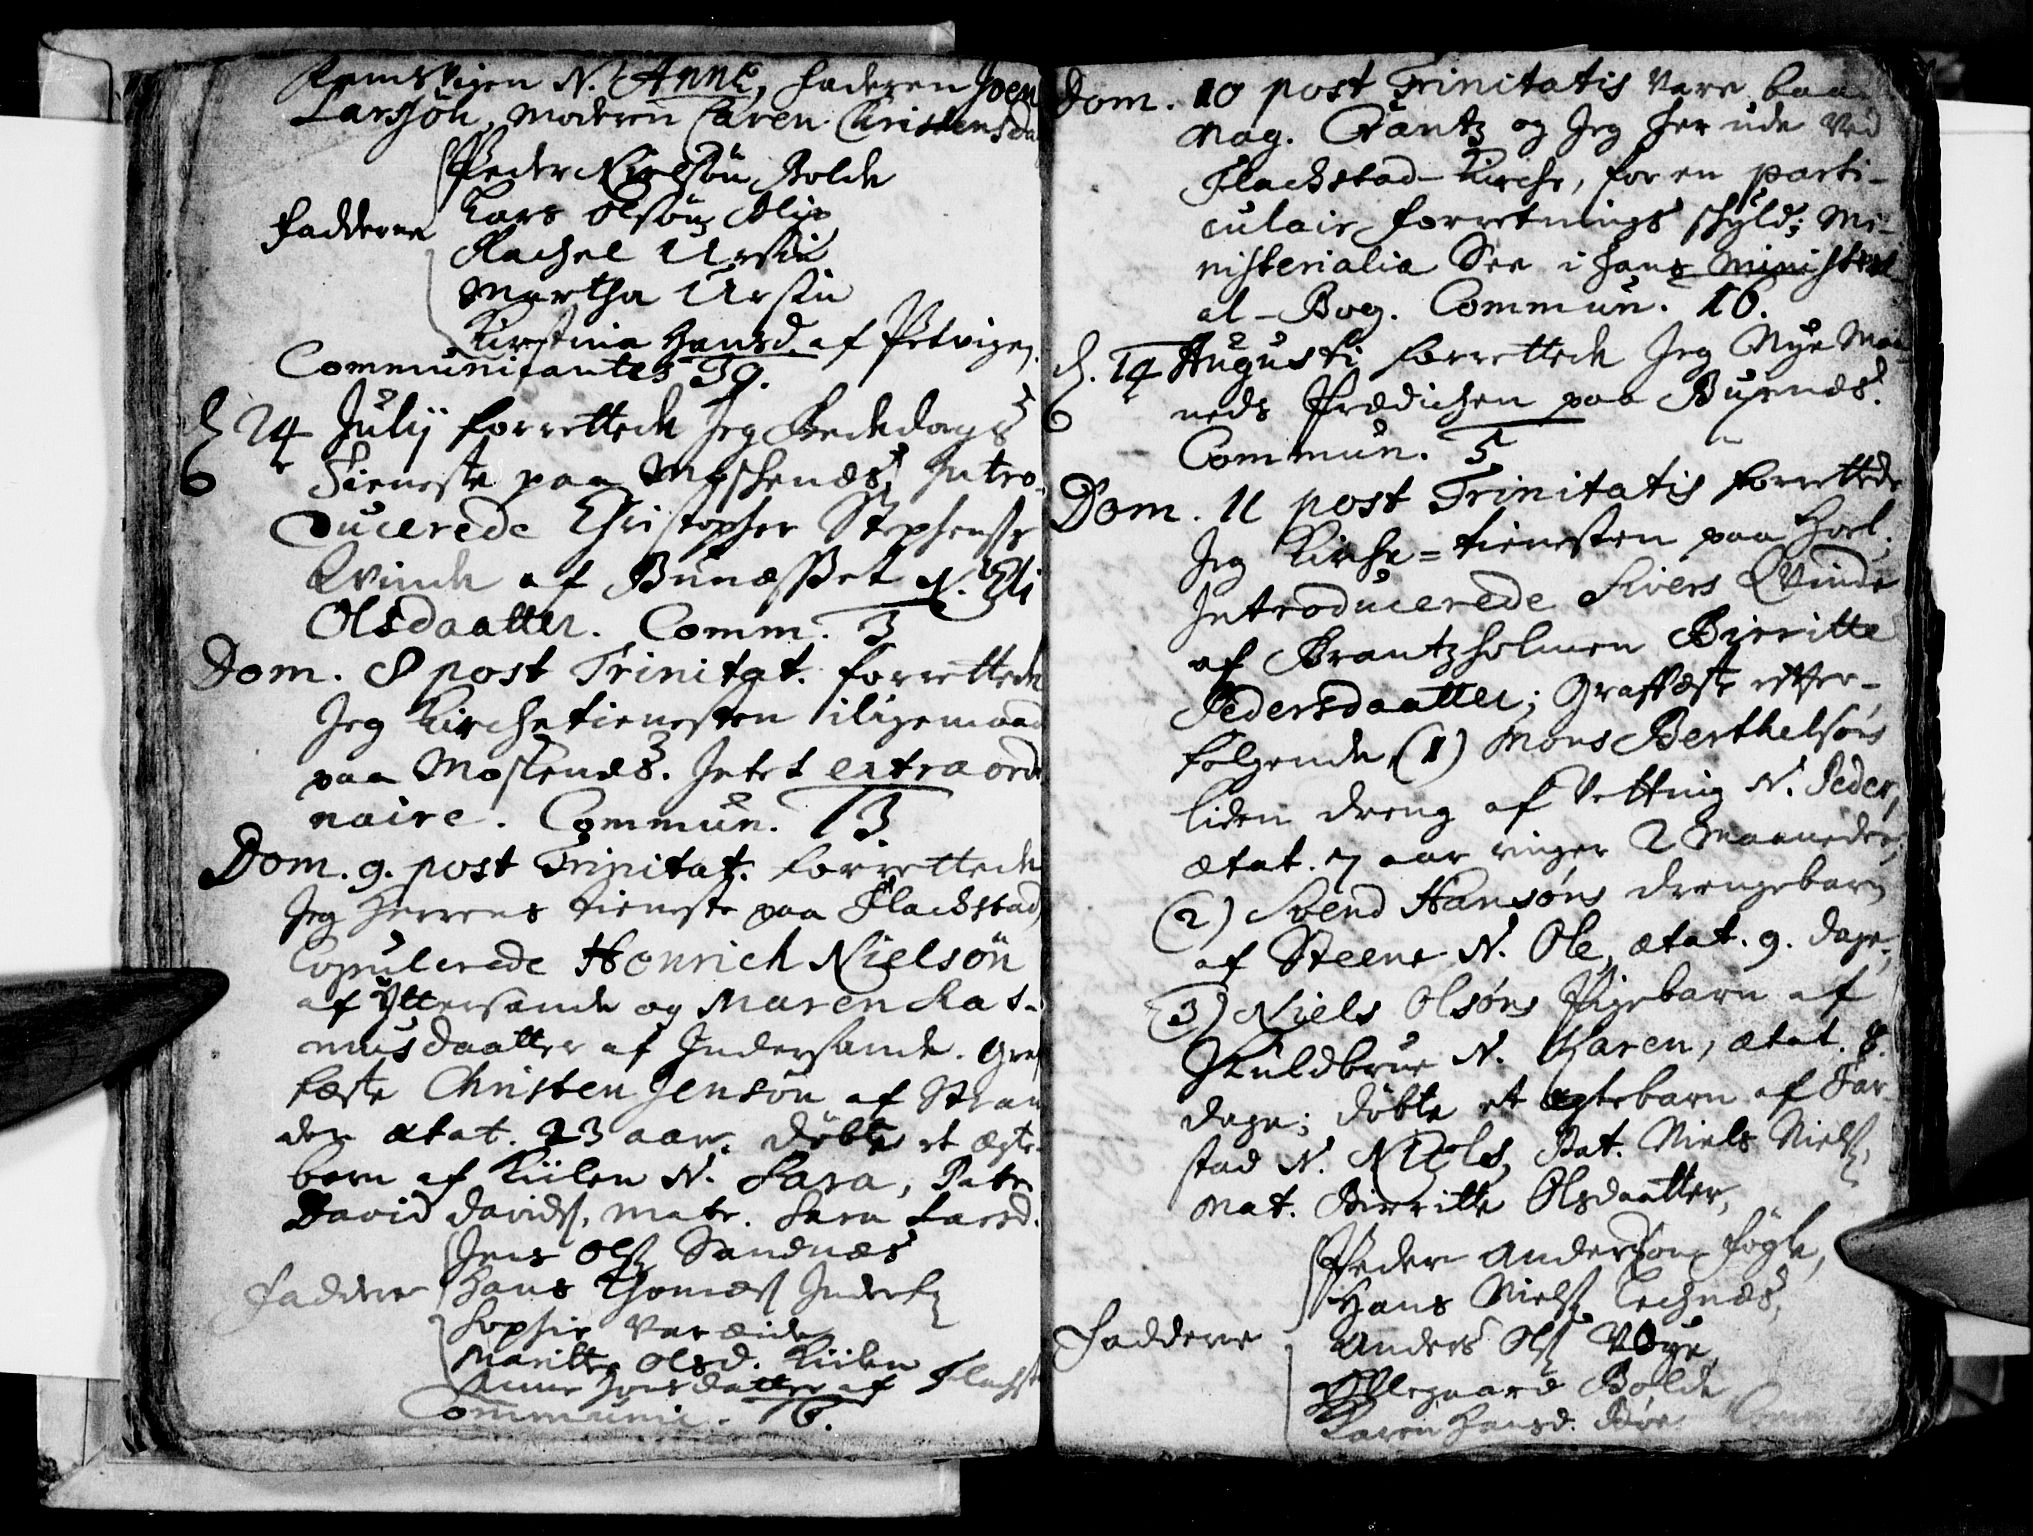 Ramsvigen N. Anne, faderen Joen
Larssøn, moderen Caren Christensda
Peder Nielsøn Bolde
Lars Olsøn
Fadderne
Rachel Ursin
Martha Ursin
Kirstina Hansd. af
Communicantes 39.
d. 24 Julij forrettede Jeg Bededags
6 Tieneste paa Moschenæs, Intro-
ducerede Christopher Stephenss.
Qvinde af Bunæsset N. Eli
Olsdaatter. Comm. 3
Dom. 8 post Trinitat. forrettede
Jeg Kirchetienesten iligemaade
paa Moskenæs. Intet extraordi
naire. Commun. 13
Dom. 9. post Trinitat. forrettede
Jeg Herrens tieneste paa Flachstad,
Copulerede Henrich Nielsøn
af Yttersande og Maren Ras-
musdaatter af Indersande. Graf
fæste Christen Jensøn af Stran
den ætat. 23 aar. døbte et ægte-
barn af Kiilen N. Sara, Patr.
David Davids. matr. Sara Larsd.
Jens Ols. Sandnæs
Faddere Hans Thomæs.
Sophie Vareide
Maritte Olsd. Kiilen
Anne Hansdatter af Flachst
Communic. 16.
Dom. 10 post Trinitatis vare baade
Mag. Crantz og Jeg her ude ved
Flachstad-Kirche, for en parti-
culair forretnings schyld; Mi-
nisterialia See i hans Ministeri
al-Bog. Commun. 16.
d. 14 Augusti forrettede Jeg Nye Maa
6 neds Prædichen paa Buxnæs.
Commun. 5
Dom. 11 post Trinitatis forrettede
Jeg Kirche-tienesten paa Hoel;
Introducerede Sivers Qvinde
af Brantzholmen Birritte
Pedersdaatter; Graffæste efter-
følgende, (1) Mons Berthelsøns
liden dreng af Vetting N. Peder,
ætat. 7 aar ringer 2 Maaneder;
(2) Svend Hansøns drengebarn
af Steene N. Ole, ætat. 9. dage;
(3) Niels Olsøns Pigebarn af
Skuldbrue N. Karen, ætat. 8.
dage; døbte et ægtebarn af Far
stad N. Niels, Pat. Niels Niels.
Mat. Birritte Olsdaatter,
Peder Andersøn Fögle,
Hans Niels. Lechnæs,
Faddere Anders Ols. Vøye,
Ollegaard Bolde
Karen Hansd. Böe